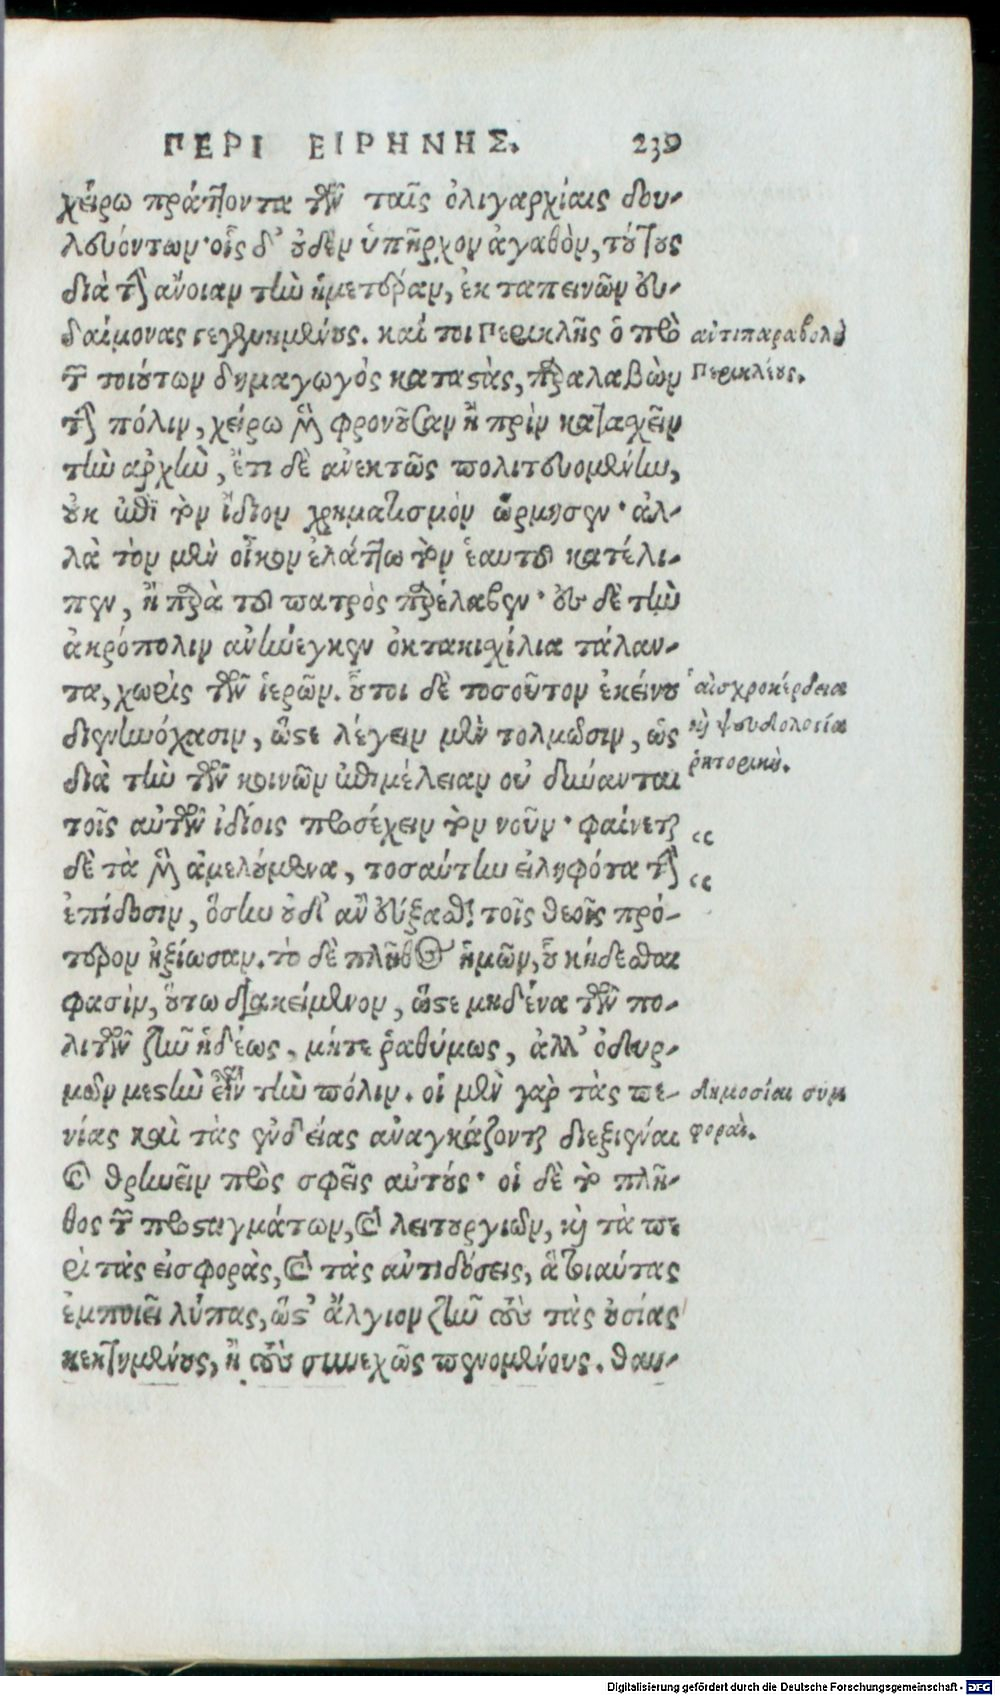 ΠΕΡΙ ΕΙΡΗΝΗΣ. 239
χείρω πράττοντα τῶν ταῖς ὀλιγαρχίαις δου-
λευόντων· οἷς δ' οὐδὲν ὑπῆρχον ἀγαθὸν, τούτους
διὰ τὴν ἄνοιαν τὴν ἡμετέραν, ἐκ ταπεινῶν εὐ-
δαίμονας γεγενημένους. καί τοι Περικλῆς ὁ πρὸ
τῶν τοιούτων δημαγωγὸς καταστὰς, παραλαβὼν
τὴν πόλιν, χείρω μὲν φρονοῦσαν ἢ πρὶν κατασχεῖν
τὴν ἀρχὴν, ἔτι δὲ ἀνεκτῶς πολιτευομένην,
οὐκ ἐπὶ τὸν ἴδιον χρηματισμὸν ὥρμησεν· ἀλ-
λὰ τὸν μὲν οἶκον ἐλάττω τὸν ἑαυτοῦ κατέλι-
πεν, ἢ παρὰ τοῦ πατρὸς παρέλαβεν· εἰς δὲ τὴν
ἀκρόπολιν ἀνήνεγκεν ὀκτακισχίλια τάλαν-
τα, χωρὶς τῶν ἱερῶν. οὗτοι δὲ τοσοῦτον ἐκείνου
διενηνόχασιν, ὥστε λέγειν μὲν τολμῶσιν, ὡς
διὰ τὴν τῶν κοινῶν ἐπιμέλειαν οὐ δύνανται
τοῖς αὑτῶν ἰδίοις προσέχειν τὸν νοῦν· φαίνεται
δὲ τὰ μὲν ἀμελούμενα, τοσαύτην εἰληφότα τὴν
ἐπίδοσιν, ὅσην οὐδ' ἂν εὔξασθαι τοῖς θεοῖς πρό-
τερον ἠξίωσαν. τὸ δὲ πλῆθος ἡμῶν, οὗ κήδεσθαι
φασὶν, οὕτω διακείμενον, ὥστε μηδένα τῶν πο-
λιτῶν ζῆν ἡδέως, μήτε ῥαθύμως, ἀλλ' ὀδυρ-
μῶν μεστὴν εἶναι τὴν πόλιν. οἱ μὲν γὰρ τὰς πε-
νίας καὶ τὰς ἐνδείας ἀναγκάζονται διεξιέναι
καὶ θρηνεῖν πρὸς σφᾶς αὐτούς· οἱ δὲ τὸ πλῆ-
θος τῶν προσταγμάτων, καὶ λειτουργιῶν, καὶ τὰ πε
ρὶ τὰς εἰσφορὰς, καὶ τὰς ἀντιδόσεις, ἃ τοιαύτας
ἐμποιεῖ λύπας, ὥστ' ἄλγιον ζῆν τοὺς τὰς οὐσίας
κεκτημένους, ἢ τοὺς συνεχῶς πενομένους. θαυ-
ἀντιπαραβολὴ
Περικλέους.
αἰσχροκέρδεια
καὶ ψευδολογία
ῥητορικὴ.
“
“
δημοσίαι συμ
φοραὶ.
Digitalisierung gefördert durch die Deutsche Forschungsgemeinschaft - DFG